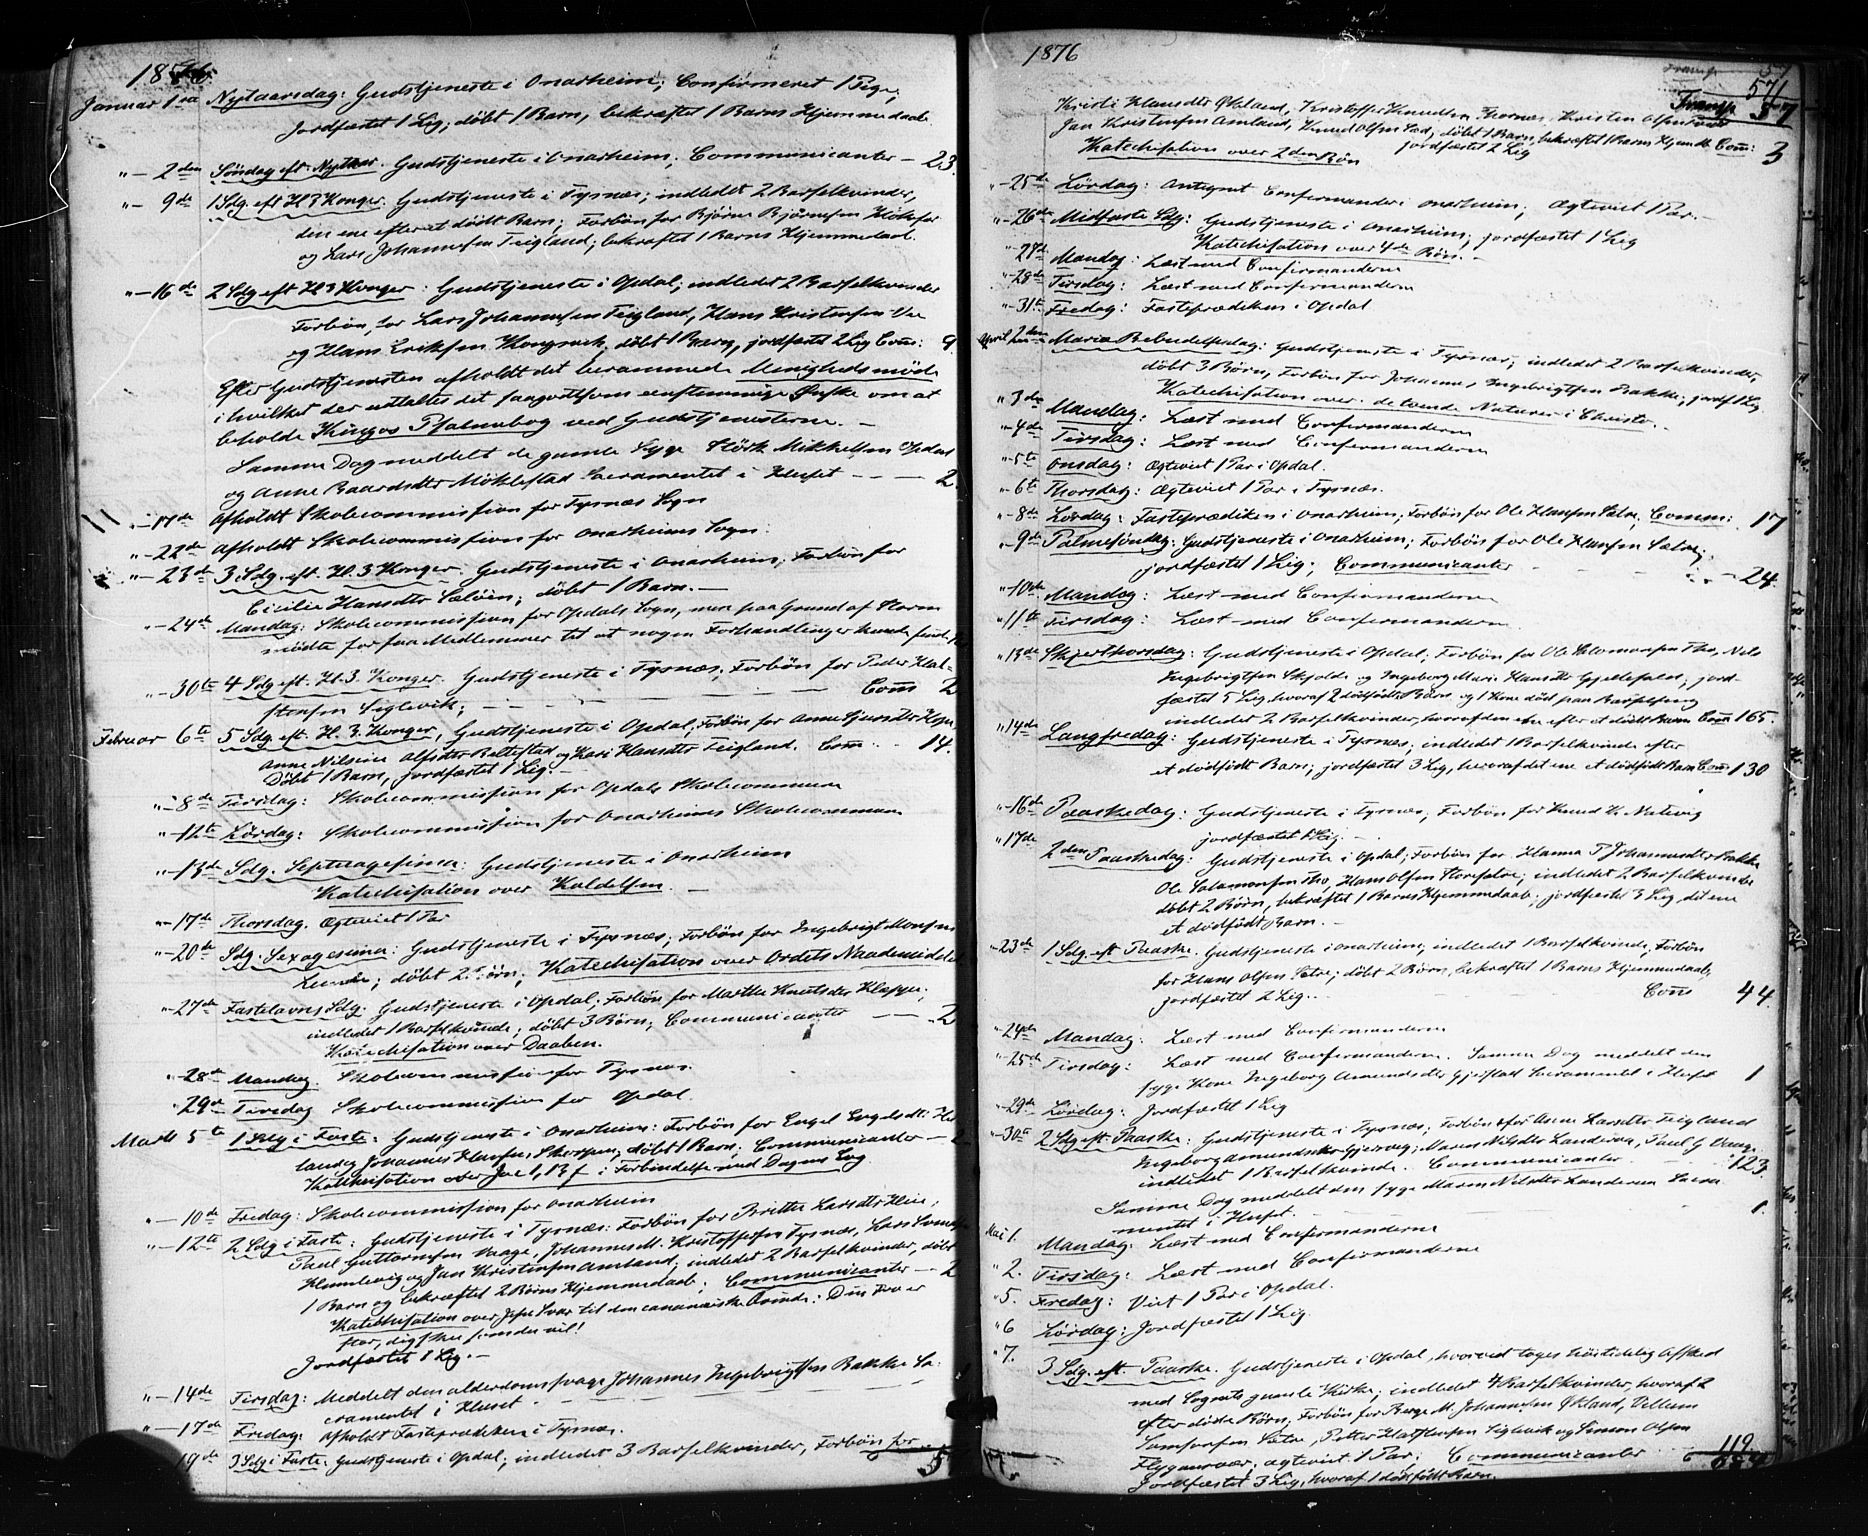 1876.
Januar 1ste Nytaarsdag: Gudstjeneste i Onarheim; Confirmeret 1 Pige;
Jordfæstet 1 Lig; døbt 1 Barn, bekræftet 1 Barns Hjemmedaab.
"- 2den Søndag eft. Nytaar. Gudstjeneste i Onarheim; Communicanter - 23.
"- 9de 1 Sdg. eft H. 3 Konger. Gudstjeneste i Tysnæs; indledet 2 Barselkvinder,
den ene efter et dødt Barn; Forbøn for Bjørne Bjørnesen
og Lars Johannessen Teigland; bekræftet 1 Barns Hjemmedaab.
"- 16de 2 Sdg eft H. 3 Konger: Gudstjeneste i Opdal; indledet 2 Barselkvinder
Forbøn for Lars Johannessen Teigland, Hans Kristensen
og Hans Eriksen Kongsvik, døbt 1 Barn, jordfæstet 2 Lig Com: 9
Efter Gudstjenesten afholdt det berammede Menighedsmøde
i hvilket der udtaltes det saagodtsom eenstemmige Ønske om at
beholde Kingos Psalmebog ved Gudstjenesterne. -
Samme Dag meddelt de gamle Syge Størk Mikkelsen Opdal
og Anne Baardsdtr Møklestad Sacramentet i Huset - - - 2.
"- 17de Afholdt Skolecommission for Tysnæs Sogn
"- 22de Afholdt Skolecommission for Onarheims Sogn.
"- 23de 3 Sdg. eft. H. 3 Konger. Gudstjeneste i Onarheim; Forbøn for
Cicilie Hansdtr Sæløen; døbt 1 Barn. -
"- 24de Mandag: Skolecommission for Opdals Sogn, men paa Grund af Storm
mødte for faa Medlemmer til at nogen Forhandlinger kunde finde
"- 30te 4 Sdg eft. H. 3. Konger. Gudstjeneste i Tysnæs; Forbøn for Peder Hal-
stensen Siglevik; - - - Com 2
Februar 6te 5 Sdg. eft. H. 3. Konger, Gudstjeneste i Opdal; Forbøn for Anne
Anne Nilsine Alfsdtr Baltestad og Kari Hansdtr Teigland. Com - 14.
Døbt 1 Barn, jordfæstet 1 Lig. -
"- 8de Tirsdag: Skolecommission for Opdals Skolecommune
"- 12te Lørdag: Skolecommission for Onarheims Skolecommune
"- 13de Sdg. Septuagesima: Gudstjeneste i Onarheim
Katechisation over Kaldelsen. -
"- 17de Thorsdag. Ægteviet 1 Par
"- 20de Sdg. Sexagesima: Gudstjeneste i Tysnæs; Forbøn for Ingebrigt Monsen
døbt 2 Børn; Katechisation over Ordets Naademiddel
"- 27de Fastelavns Sdg: Gudstjeneste i Opdal; Forbøn for Marthe Knutsdtr
indledet 1 Barselkvinde; døbt 3 Børn; Communicanter - - 2
Katechisation over Daaben.
"- 28de Mandag. Skolecommission for Tysnæs.
29de Tirsdag Skolecommission for Opdal.
Marts 5te 1 Sdg i Faste: Gudstjeneste i Onarheim: Forbøn for Engel Engelsdtr
og Johannes Hansen Skorpen; døbt 1 Barn; Communicanter -
Katechisation over Jac 1, 13 f i Forbindelse med Dagens Evg.
"- 10de Fredag: Skolecommission for Onarheim
"- 12te 2 Sdg i Faste: Gudstjeneste i Tysnæs: Forbøn for Britte Larsdtr
Paul Guttormsen Vaage, Johannes M. Kristoffersen Tysnæs, Lars
og Jan Kristensen Amland; indledet 2 Barselkvinder, døbt
1 Barn og bekræftet 2 Børns Hjemmedaab; Communicanter - 2
Katechisation over Jesu Svar til den cananæiske Qvinde: Din Tro er
stor, dig skee som du vil!
Jordfæstet 1 Lig. -
"- 14de Tirsdag: Meddelt den alderdomssvage Johannes Ingebrigtsen Bakke Sa-
cramentet i Huset.
"- 17de Fredag: Afholdt Fasteprædiken i Tysnæs.
19de 3 Sdg i Faste. Gudstjeneste i Opdal; indledet 3 Barselkvinder, Forbøn for
1876
Transp. 57
Kristi Hansdtr Økland, Kristoffer Knudsen Thornæs, Kristen Olsen
Jan Kristensen Amland, Knud Olsen døbt 1 Barn, bekræftet 1 Barns Hjemd. Com: 3
jordfæstet 2 Lig
Katechisation over 2den Bøn
"- 25de Lørdag: Antegnet Confirmander i Onarheim; Ægteviet 1 Par. -
"- 26de Midfaste Sdg: Gudstjeneste i Onarheim; jordfæstet 1 Lig
Katechisation over 4de Bøn. -
"- 27de Mandag: Læst med Confirmanderne
"- 28de Tirsdag: Læst med Confirmanderne
"- 31te Fredag: Fasteprædiken i Opdal
April 2den Maria Bebudelsesdag: Gudstjeneste i Tysnæs; indledet 2 Barselkvinder,
døbt 3 Børn, Forbøn for Johannes Ingebrigtsen Bakke; jordf 1 Lig
Katechisation over de tvende Naturer i Christo. -
" 3die Mandag: Læst med Confirmanderne
"- 4de Tirsdag: Læst med Confirmanderne
"- 5te Onsdag: Ægteviet 1 Par i Opdal.
"- 6te Thorsdag: Ægteviet 1 Par i Tysnæs.
"- 8de Lørdag: Fasteprædiken i Onarheim; Forbøn for Ole Hansen Sætre; Comm: 17
"- 9de Palmesøndag: Gudstjeneste i Onarheim; Forbøn for Ole Hansen Sætre;
jordfæstet 1 Lig; Communicanter - - - 24.
"- 10de Mandag: Læst med Confirmanderne
"- 11te Tirsdag: Læst med Confirmanderne.
"- 13de Skjertthorsdag: Gudstjeneste i Opdal; Forbøn for Ole Salomonsen Tho, Nils
Ingebrigtsen Skjolde og Ingeborg Marie Hansdtr jord-
fæstet 5 Lig, hvoraf 2 dødfødte Børn og 1 Kone død paa Barselseng
indledet 2 Barselkvinder, hvoraf den ene efter et dødt Barn Com 165.
"14de Langfredag: Gudstjeneste i Tysnæs; indledet 1 Barselkvinde efter
et dødfødt Barn; jordfæstet 3 Lig, hvoraf det ene et dødfødt Barn Com 130
"- 16de Paaskedag: Gudstjeneste i Tysnæs; Forbøn for Knud K. Nativig
jordfæstet 1 Lig. -
"17de 2den Paaskedag: Gudstjeneste i Opdal; Forbøn for Hanna T Johannesdtr Bakke
Ole Salamonsen Tho, Hans Olsen indledet 2 Barselkvinder
døbt 2 Børn, bekræftet 1 Barns Hjemmedaab; jordfæstet 3 Lig, det ene
et dødfødt Barn. -
"- 23de 1 Sdg. eft Paaske. Gudstjeneste i Onarheim; indledet 1 Barselkvinde; Forbøn
for Hans Olsen Sætre; døbt 2 Børn, bekræftet 1 Barns Hjemmedaab,
jordfæstet 2 Lig. - - - Com 44.
"- 24de Mandag: Læst med Confirmanderne
"- 25de Tirsdag: Læst med Confirmanderne. Samme Dag meddelt den
syge Kone Ingeborg Amundsdtr Sacramentet i Huset 1
"- 29de Lørdag: Jordfæstet 1 Lig
"- 30te 2 Sdg eft. Paaske: Gudstjeneste i Tysnæs; Forbøn for Anna Larsdtr Teigland
Ingeborg Amundsdtr Maren Nilsdtr Landeroen, Paul G Vaage
indledet 1 Barselkvinde. Communicanter - - 123.
Samme Dag meddelt den syge Maren Nilsdtr Landeroen Sacra-
mentet i Huset. - - - 1.
Mai 1. Mandag: Læst med Confirmanderne
" 2. Tirsdag: Læst med Confirmanderne
" 5. Fredag: Viet 1 Par i Opdal.
" 6 Lørdag: Jordfæstet 1 Lig.
" 7. 3 Sdg. eft. Paaske. Gudstjeneste i Opdal, hvorved toges høitidelig Afsked
med Sognets gamle Kirke; indledet 4 Barselkvinder, hvoraf 2
efter døde Børn, Forbøn for Berge M. Johannesen Økland, Villum
Samsonsen Sætre, Petter Halstensen Siglevik og Simon Olsen
Flygansvær; ægteviet 1 Par; Communicanter 119.
Jordfæstet 3 Lig, hvoraf 1 dødfødt Barn.